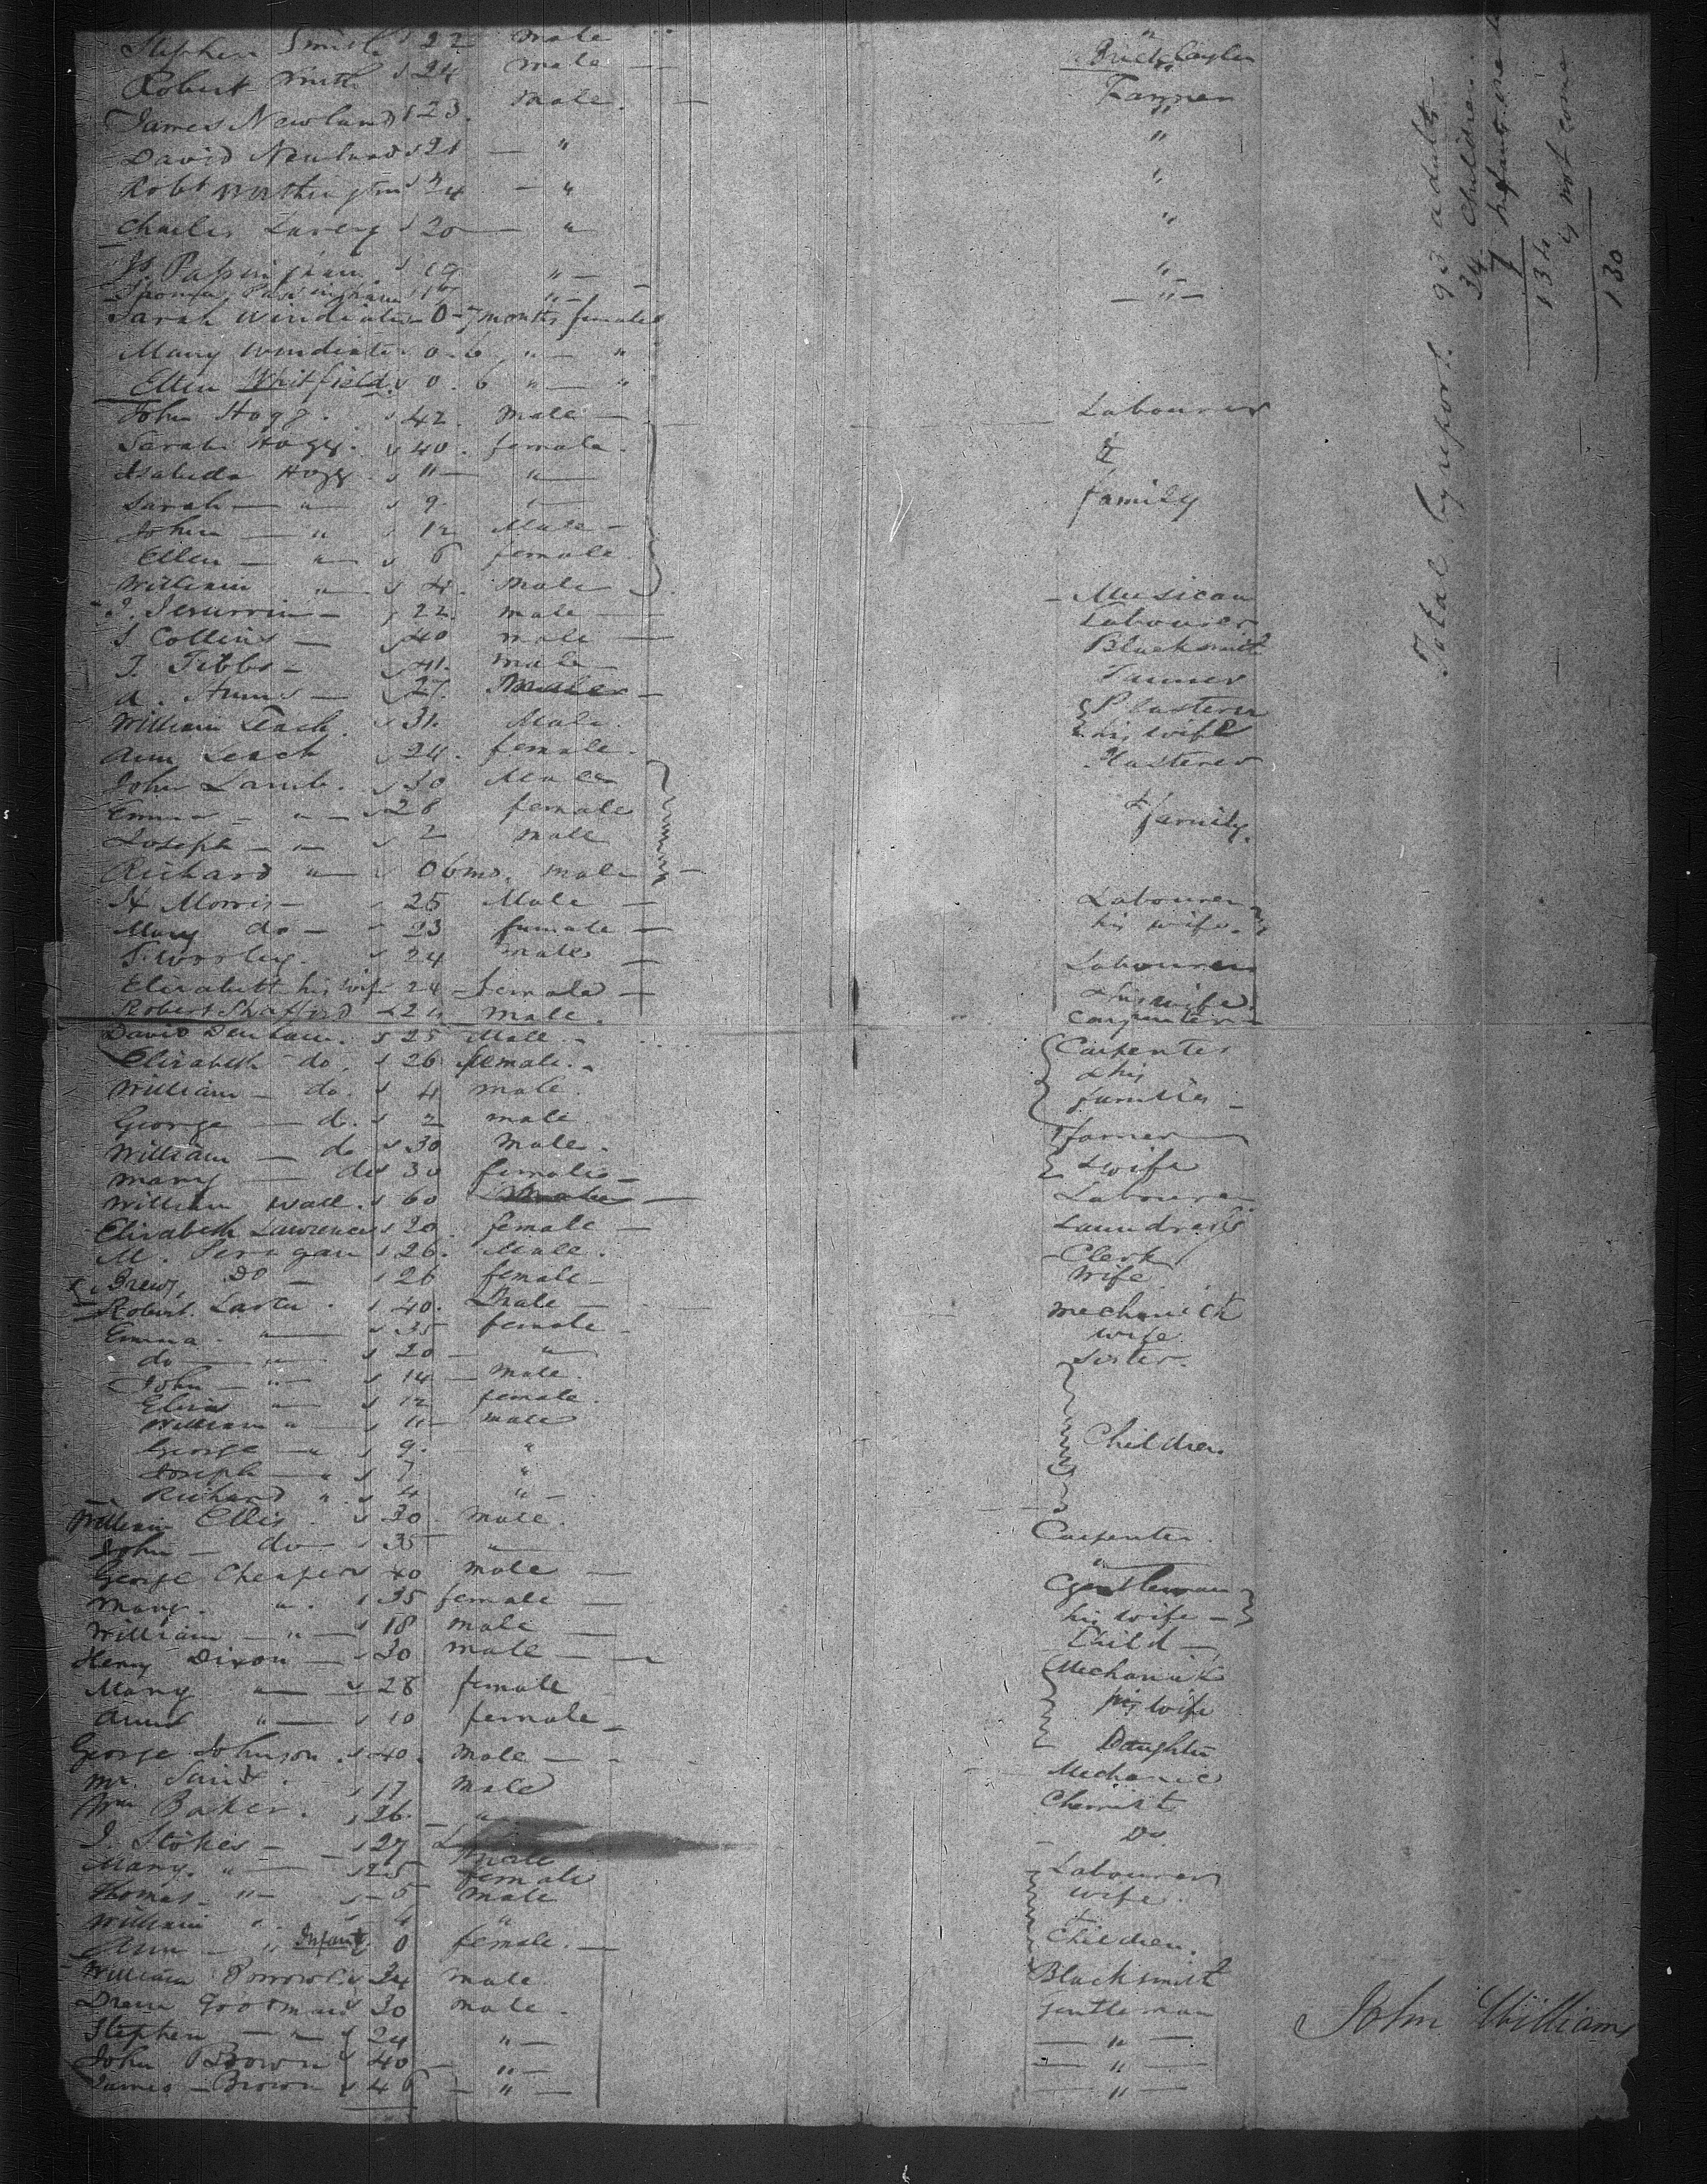 Stephen Smith 22 male "
Robert Smith 24 male — Brick layer
James Newland 23. male. — Farmer
David Newland 21 — " "
Robt Worthington 24 — " "
Charles Lavery 20 — " "
Js. Passingham 19 " — "
Thomas Passingham 16 " — — " —
Sarah Windiate 0 - 7 months female
Mary Windiate 0 - 6 " — "
Ellen Whitfield 0 - 6 " — "
John Hogg. 42. male — Labourer
Sarah Hogg. 40. female. &
Isabella Hogg 11 — " family
Sarah — " 9. "
John — " 12 Male —
Ellen — " 6 female
William " 4. male
22. male — Musican
S Collins — 40 male — Labourer
T. Tibbs — 41. male Blacksmith
A. 27. Male — Tanner
William Leach. 31. Male. Plasterer
Ann Leach 24. female. his wife
John Lamb. 30 Male Plasterer
Emma — " — 28 female &
Joseph — " — 2 male family.
Richard " — 0 6 mo. male —
H Morris — 25 Male — Labourer
Mary do — 23 female — his wife.
S. Worsley. 24 male — Labourer
Elizabeth his wife 24 female — & his wife.
Robert Shafford 21 male. Carpenter
David Denham. 25 Male — Carpenter
Elizabeth do. 26 female. & his
William — do. 4 male. families —
George — do. 2 male.
William — do 30 male. farmer
Mary — do 30 female — & wife
William Wall. 60 Male — Labourer
Elizabeth Lawrence 20 female — Laundress
M. 26. Male. Clerk
Do — 26 female — Wife
Robert. Carter. 40. Male — mechanick
Emma. " — 35 female — wife
do — " — 20 — " Sister.
John — " — 14 — male.
Eliza " — 12 female.
William " — 11 — male
George — " 9. " Children
Joseph — " 7 "
Richard " 4 " —
William Ellis. 30. male. Carpenter.
John — do — 35 — "
George 40 male — Gentleman
Mary. " 35 female — his wife —
William — " — 18 male — Child —
Henry Dixon — 30 male — Mechanick
Mary " — 28 female his wife
Anne " — 10 female — Daughter
George Johnson. 40. male — Mechanic
Mr. 17 male Chemist
Wm Baker. 26. — " — Do.
J. Stokes — 27 Male Labourer
Mary. " — 25 female wife.
Thomas — " — 5 male &
William " 4 " Children.
Ann — " Infant 0 female. —
William 34 male Blacksmith
Goodman 30 male. Gentleman
Stephen — " — 24 " — — " —
John Brown 40 — " — — " —
James — Brown 46 — " — — " —
Total by report. 93 adults —
34 Children.
7 Infants
134
4 not come
130
John Williams